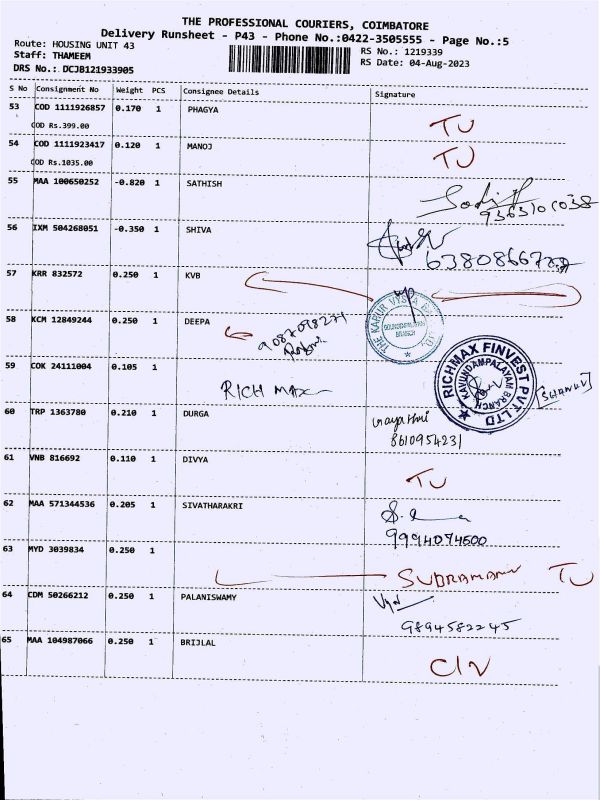 THE PROFESSIONAL COURIERS, COIMBATORE
Delivery Runsheet - P43 - Phone No.:0422-3505555 - Page No.:5
Route: HOUSING UNIT 43
RS No.: 1219339
Staff: THAMEEM
RS Date: 04-Aug-2023
DRS No.: DCJB121933905
S No Consignment No Weight PCS Consignee Details Signature
53 COD 1111926857 0.170 1 PHAGYA TU
COD Rs.399.00
54 COD 1111923417 0.120 1 MANOJ TU
COD Rs.1035.00
55 MAA 100650252 -0.820 1 SATHISH
56 IXM 504268051 -0.350 1 SHIVA
57 KRR 832572 0.250 1 KVB
THE KARUR VYSYA
BRANCH
58 KCM 12849244 0.250 1 DEEPA
59 COK 24111004 0.105 1
RICH MAX
RICHMAX FINVEST PVT LTD
KAVUNDAMPALAYAM BRANCH
60 TRP 1363780 0.210 1 DURGA
8610954231
61 VNB 816692 0.110 1 DIVYA TU
62 MAA 571344536 0.205 1 SIVATHARAKRI
9994074500
63 MYD 3039834 0.250 1
TU
64 CDM 50266212 0.250 1 PALANISWAMY
9894582245
65 MAA 104987066 0.250 1 BRIJLAL